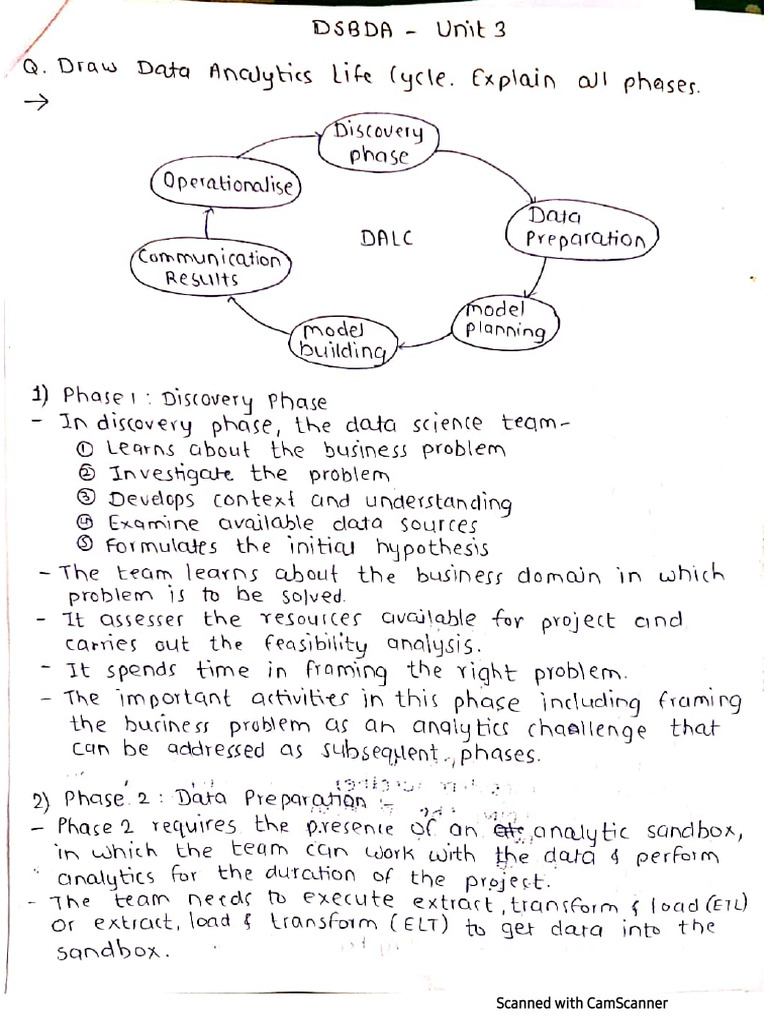 DSBDA - Unit 3
Q. Draw Data Analytics Life Cycle. Explain all phases.
→
Discovery
phase
Operationalise
Data
Preparation
DALC
Communication
Results
model
planning
model
building
1) Phase 1 : Discovery Phase
- In discovery phase, the data science team-
① Learns about the business problem
② Investigate the problem
③ Develops context and understanding
④ Examine available data sources
⑤ Formulates the initial hypothesis
- The team learns about the business domain in which
problem is to be solved.
- It assesses the resources available for project and
carries out the feasibility analysis.
- It spends time in framing the right problem.
- The important activities in this phase including framing
the business problem as an analytics challenge that
can be addressed as subsequent phases.
2) Phase 2 : Data Preparation :-
- Phase 2 requires the presence of an analytic sandbox,
in which the team can work with the data & perform
analytics for the duration of the project.
- The team needs to execute extract, transform & load (ETL)
or extract, load & transform (ELT) to get data into the
sandbox.
Scanned with CamScanner